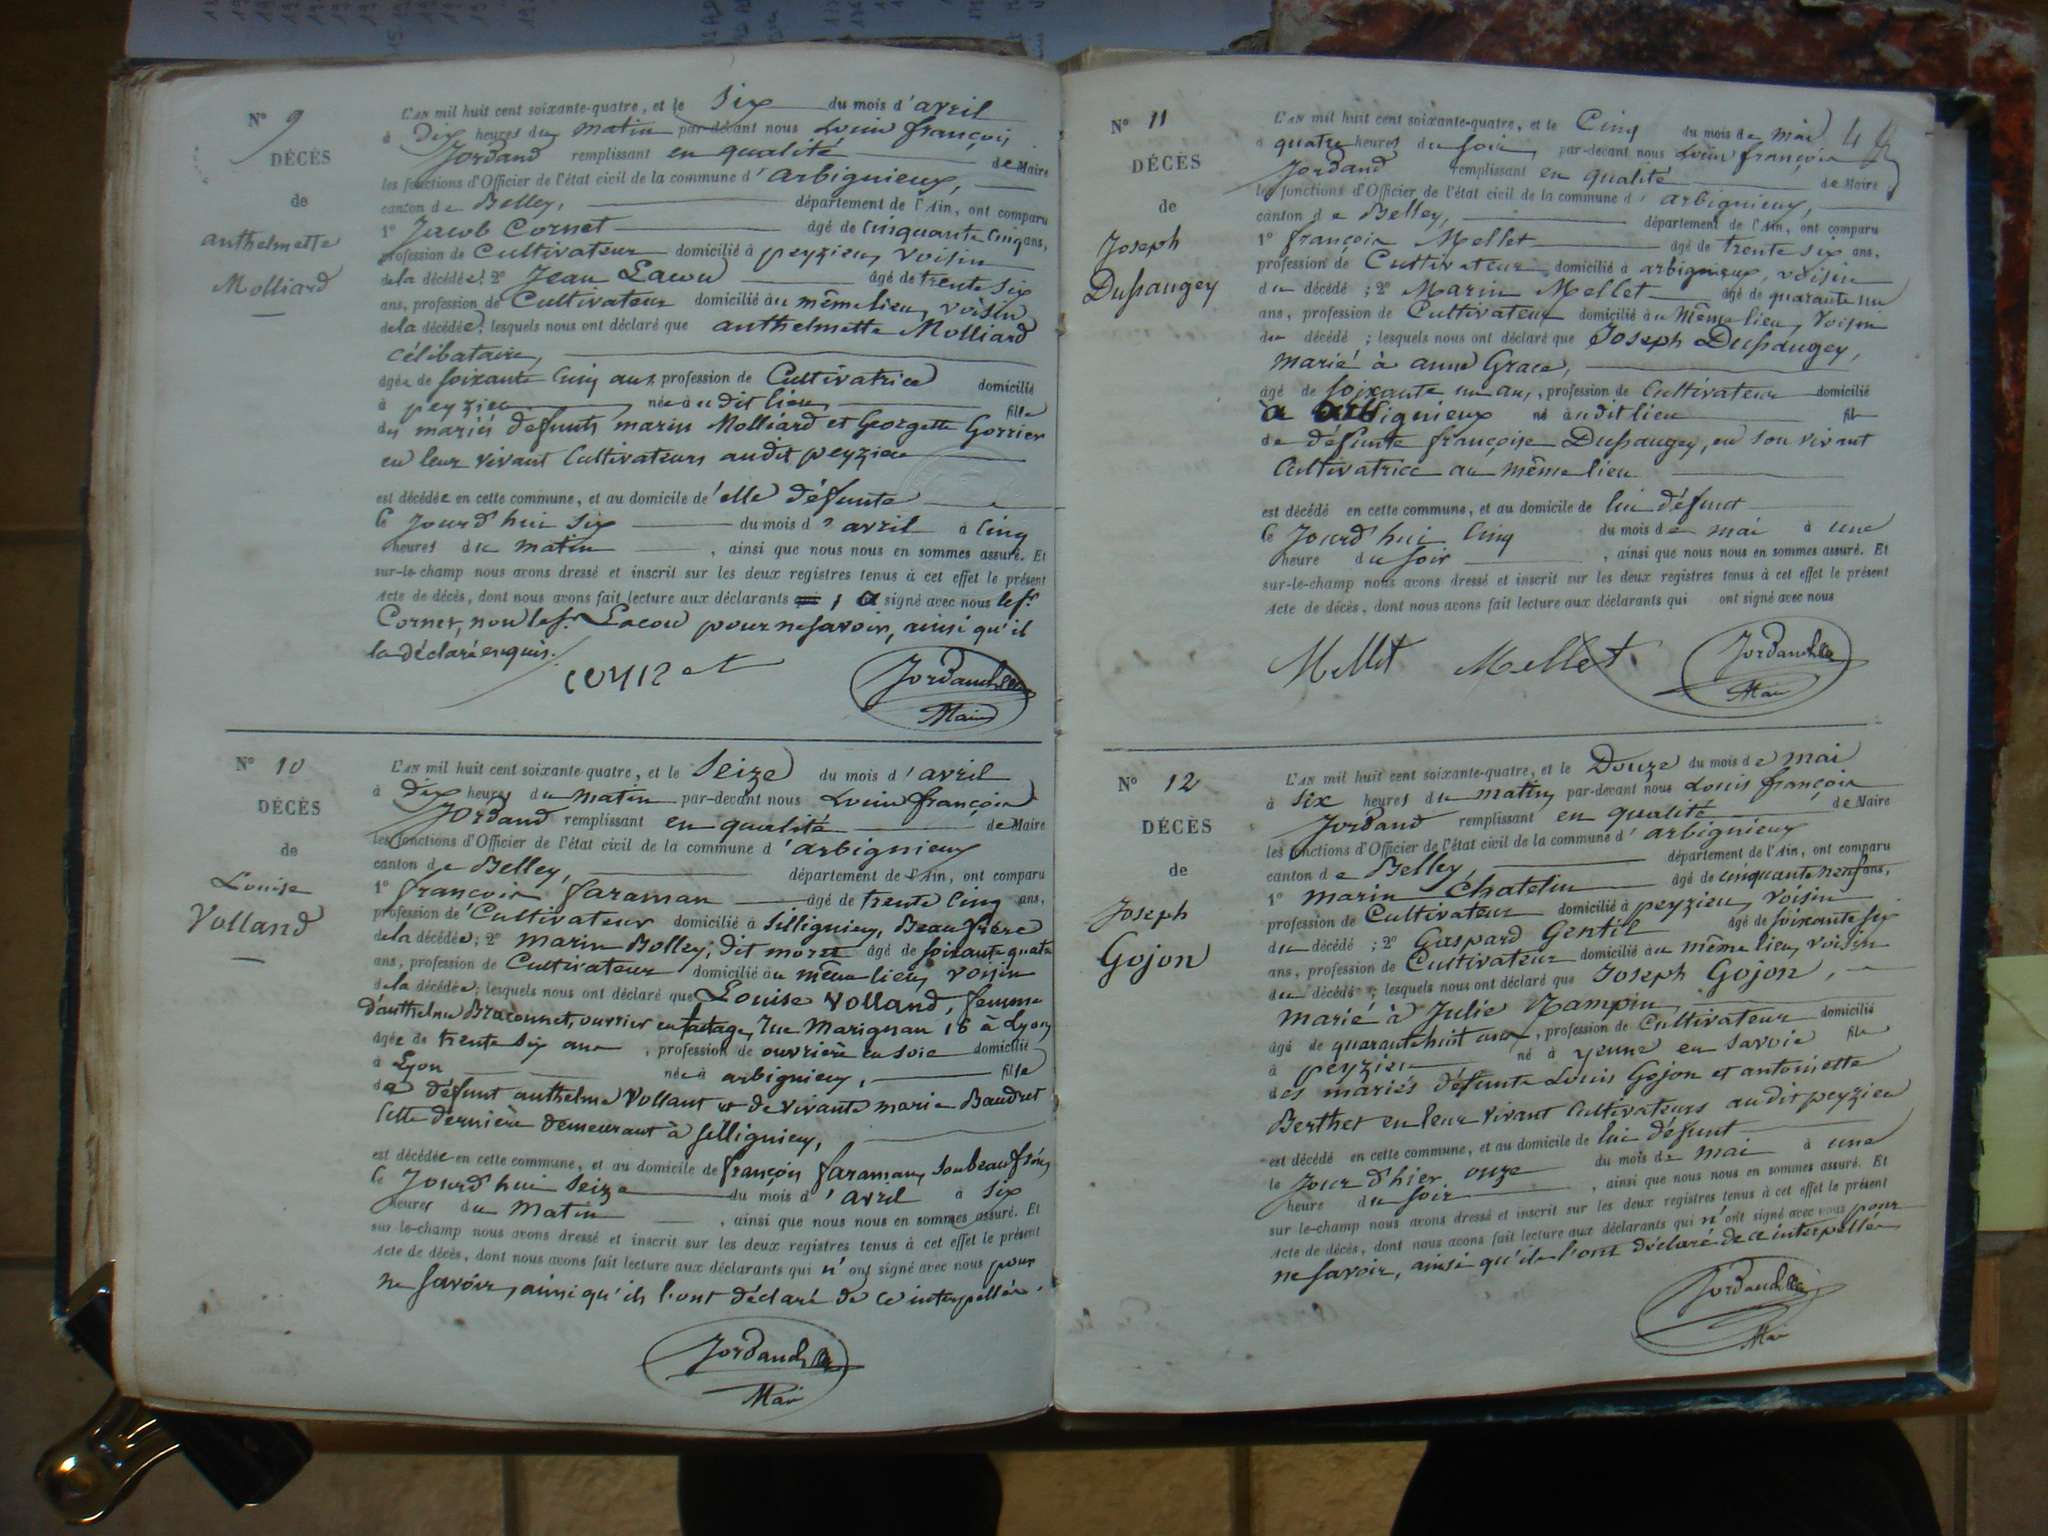 N° 9
DÉCÈS
de
anthelmette
Molliard
L'AN mil huit cent soixante-quatre, et le six du mois d'avril
à Dix heures du matin par-devant nous Louis françois
Jordand remplissant en qualité de Maire
les fonctions d'Officier de l'état civil de la commune d'arbignieux,
canton de Belley, département de l'Ain, ont comparu
1° Jacob Cornet âgé de cinquante cinq ans,
profession de Cultivateur domicilié à peyzieu, voisin
de la décédée; 2° Jean Lacou âgé de trente six
ans, profession de Cultivateur domicilié au même lieu, voisin
de la décédée; lesquels nous ont déclaré que anthelmette Molliard
célibataire,
âgée de soixante cinq ans, profession de Cultivatrice domicilié
à peyzieu née audit lieu, fille
des mariés defunts marin Molliard et Georgette Gorrier
en leur vivant Cultivateurs audit peyzieu
est décédée en cette commune, et au domicile d'elle défunte
le jourd'hui six du mois d'avril à cinq
heures du matin, ainsi que nous nous en sommes assuré. Et
sur-le-champ nous avons dressé et inscrit sur les deux registres tenus à cet effet le présent
Acte de décès, dont nous avons fait lecture aux déclarants, a signé avec nous le sr
Cornet, non le sr Lacou pour ne savoir, ainsi qu'il
la déclaré enquis.
cornet Jordand
Maire
N° 10
DÉCÈS
de
Louise
Volland
L'AN mil huit cent soixante-quatre, et le Seize du mois d'avril
à Dix heures du matin par-devant nous Louis françois
Jordand remplissant en qualité de Maire
les fonctions d'Officier de l'état civil de la commune d'arbignieux
canton de Belley, département de l'Ain, ont comparu
1° françois faraman âgé de trente cinq ans,
profession de Cultivateur domicilié à Sillignieu, Beau frère
de la décédée; 2° marin Bolley, dit moret âgé de soixante quatre
ans, profession de Cultivateur domicilié au même lieu, voisin
de la décédée; lesquels nous ont déclaré que Louise Volland, femme
d'anthelme Braconnet, ouvrier en factage, rue Marignan 16 à Lyon
âgée de trente six ans, profession de ouvrière en soie domicilié
à Lyon née à arbignieu, fille
de défunt anthelme Vollant et de vivante marie Baudret
Cette dernière demeurant à Sillignieu,
est décédée en cette commune, et au domicile de françois faraman, son beau frère
le jourd'hui seize du mois d'avril à six
heures du Matin, ainsi que nous nous en sommes assuré. Et
sur-le-champ nous avons dressé et inscrit sur les deux registres tenus à cet effet le présent
Acte de décès, dont nous avons fait lecture aux déclarants qui n'ont signé avec nous pour
ne savoir, ainsi qu'ils l'ont déclaré de ce interpellés.
Jordand
Maire
N° 11
DÉCÈS
de
Joseph
Dussaugey
L'AN mil huit cent soixante-quatre, et le Cinq du mois de mai
à quatre heures du soir, par-devant nous Louis françois
Jordand remplissant en qualité de Maire
les fonctions d'Officier de l'état civil de la commune d'arbignieux,
canton de Belley, département de l'Ain, ont comparu
1° françois Mellet âgé de trente six ans.
profession de Cultivateur domicilié à arbignieux, voisin
du décédé; 2° Marin Mellet âgé de quarante un
ans, profession de Cultivateur domicilié au même lieu, voisin
du décédé; lesquels nous ont déclaré que Joseph Dussaugey,
marié à anne Grace,
âgé de soixante un ans, profession de Cultivateur domicilié
à arbignieux né audit lieu fils
de défunte françoise Dussaugey, en son vivant
Cultivatrice au même lieu
est décédé en cette commune, et au domicile de lui défunt
le jourd'hui cinq du mois de mai à une
heure du soir, ainsi que nous nous en sommes assuré. Et
sur-le-champ nous avons dressé et inscrit sur les deux registres tenus à cet effet le présent
Acte de décès, dont nous avons fait lecture aux déclarants qui ont signé avec nous
Mellet Mellet Jordand
Maire
N° 12
DÉCÈS
de
Joseph
Gojon
L'AN mil huit cent soixante-quatre, et le Douze du mois de mai
à six heures du matin, par-devant nous Louis françois
Jordand remplissant en qualité de Maire
les fonctions d'Officier de l'état civil de la commune d'arbignieux
canton de Belley, département de l'Ain, ont comparu
1° marin Chatelin âgé de cinquante neuf ans,
profession de Cultivateur domicilié à peyzieu, voisin
du décédé; 2° Gaspard Gentil âgé de soixante six
ans, profession de Cultivateur domicilié au même lieu, voisin
du décédé; lesquels nous ont déclaré que Joseph Gojon,
marié à Julie Rampin,
âgé de quarante huit ans, profession de Cultivateur domicilié
à peyzieu né à yenne en Savoie fils
des mariés défunts Louis Gojon et antoinette
Berthet en leur vivant Cultivateurs audit peyzieu
est décédé en cette commune, et au domicile de lui défunt
le jour d'hier onze du mois de mai à une
heure du soir, ainsi que nous nous en sommes assuré. Et
sur-le-champ nous avons dressé et inscrit sur les deux registres tenus à cet effet le présent
Acte de décès, dont nous avons fait lecture aux déclarants qui n'ont signé avec nous pour
ne savoir, ainsi qu'ils l'ont déclaré de ce interpellés
Jordand
Maire